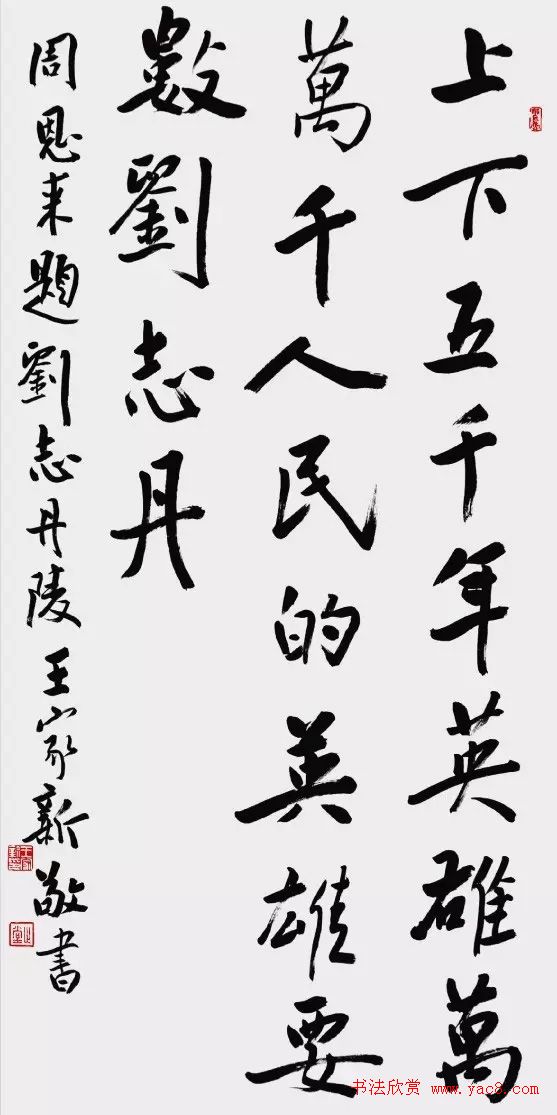 上下五千年英雄萬
萬千人民的英雄要
數劉志丹
周恩来題劉志丹陵王家新敬書
书法欣赏
www.yac8.com